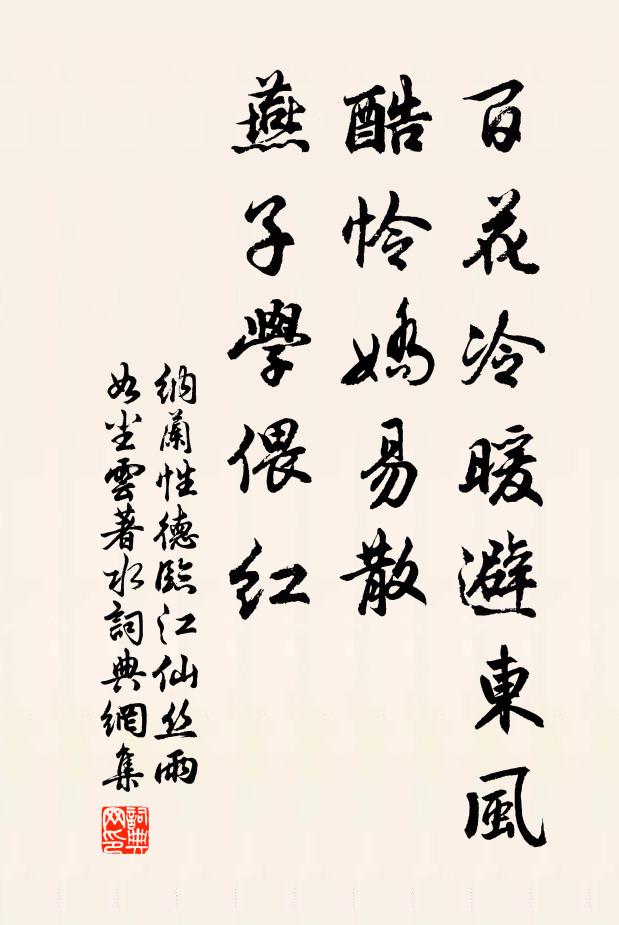 百花冷暖避東風
酷怜嬌易散
燕子學偎红
納蘭性德臨江仙丝雨
如尘雲著水詞典網集
詞典
网印